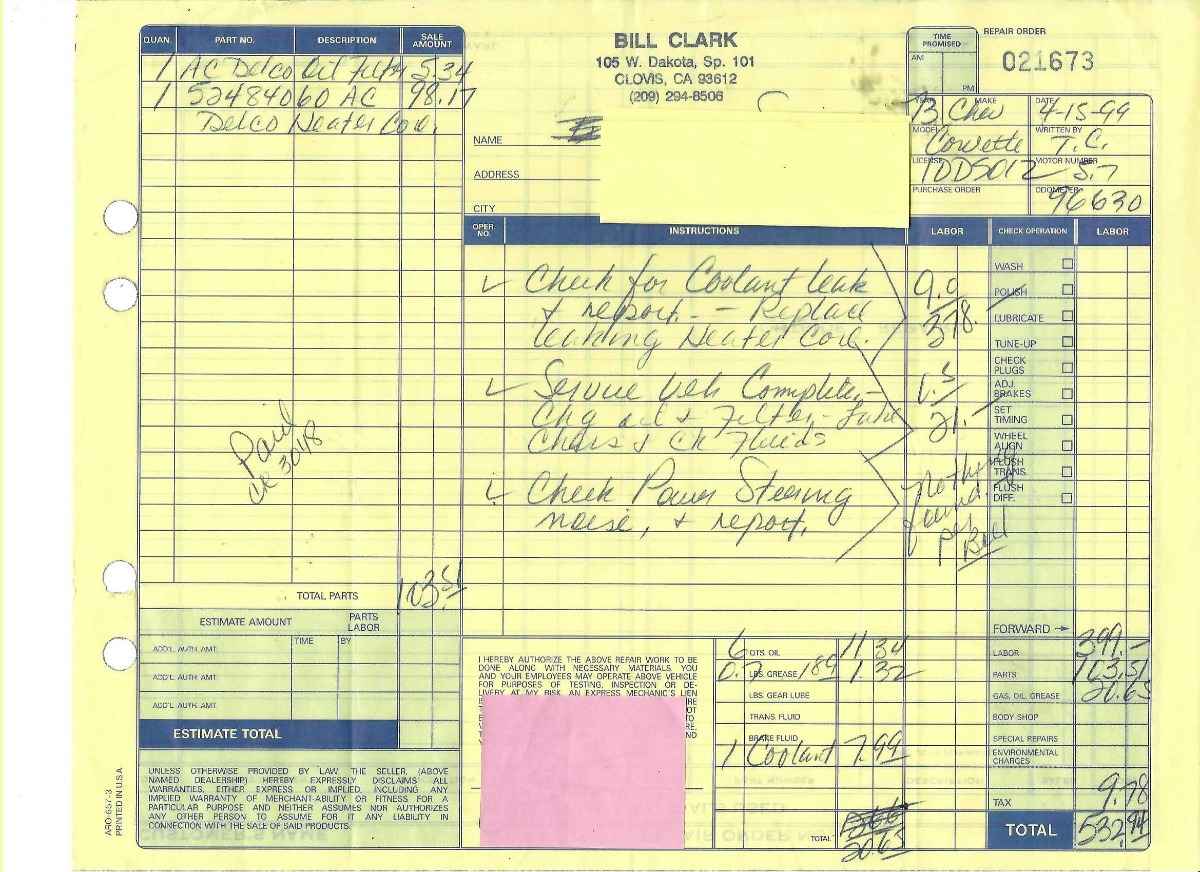 QUAN. PART NO. DESCRIPTION SALE AMOUNT
1 AC Delco Oil Filter 5.34
1 52484060 AC 98.17
Delco Heater Core.
BILL CLARK
105 W. Dakota, Sp. 101
CLOVIS, CA 93612
(209) 294-8506
TIME PROMISED
AM
PM
REPAIR ORDER
021673
YEAR MAKE DATE
73 Chev 4-15-99
MODEL WRITTEN BY
Corvette T.C.
LICENSE MOTOR NUMBER
1DDS012 5.7
PURCHASE ORDER ODOMETER
96630
NAME
ADDRESS
CITY
OPER. NO. INSTRUCTIONS LABOR CHECK OPERATION LABOR
Check for Coolant leak 9.0
& report. - Replace 378.
leaking Heater Core.
Service Veh Complete, - 1.5
Chg oil & Filter - Lube 21.-
Chass & Ck Fluids
Check Power Steering Nothing
noise, & report. found. per Bill
WASH
POLISH
LUBRICATE
TUNE-UP
CHECK PLUGS
ADJ. BRAKES
SET TIMING
WHEEL ALIGN
FLUSH TRANS.
FLUSH DIFF.
Paid
CK 3048
TOTAL PARTS 103.51
ESTIMATE AMOUNT PARTS LABOR
TIME BY
ADD'L. AUTH. AMT.
ADD'L. AUTH. AMT.
ADD'L. AUTH. AMT.
ESTIMATE TOTAL
UNLESS OTHERWISE PROVIDED BY LAW, THE SELLER, (ABOVE
NAMED DEALERSHIP) HEREBY EXPRESSLY DISCLAIMS ALL
WARRANTIES, EITHER EXPRESS OR IMPLIED, INCLUDING ANY
IMPLIED WARRANTY OF MERCHANT-ABILITY OR FITNESS FOR A
PARTICULAR PURPOSE AND NEITHER ASSUMES NOR AUTHORIZES
ANY OTHER PERSON TO ASSUME FOR IT ANY LIABILITY IN
CONNECTION WITH THE SALE OF SAID PRODUCTS.
ARO-657-3
PRINTED IN U.S.A.
I HEREBY AUTHORIZE THE ABOVE REPAIR WORK TO BE
DONE ALONG WITH NECESSARY MATERIALS. YOU
AND YOUR EMPLOYEES MAY OPERATE ABOVE VEHICLE
FOR PURPOSES OF TESTING, INSPECTION OR DE-
LIVERY AT MY RISK. AN EXPRESS MECHANIC'S LIEN
6 QTS. OIL 11.34
0.7 LBS. GREASE 189 1.32
LBS. GEAR LUBE
TRANS. FLUID
BRAKE FLUID
1 Coolant 7.99
TOTAL 20.65
FORWARD →
LABOR 399.-
PARTS 103.51
GAS, OIL, GREASE 20.65
BODY SHOP
SPECIAL REPAIRS
ENVIRONMENTAL CHARGES
TAX 9.78
TOTAL 532.94